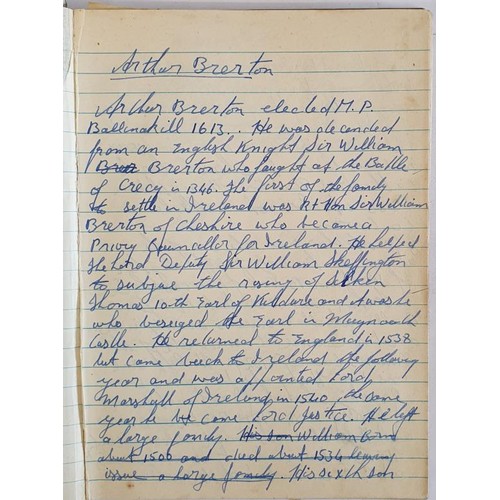 Arthur Brerton
Arthur Brerton elected M.P.
Ballinakill 1613.. He was decended
from an English Knight Sir William
Brer Brerton who fought at the Battle
of Crecy in 1346. The first of the family
to settle in Ireland was Rt Hon Sir William
Brerton of Cheshire who became a
Privy Councillor for Ireland. He helped
the Lord Deputy Sir William Skeffington
to subjue the rising of Silken
Thomas 10th Earl of Kildare and it was he
who beseiged the Earl in Maynooth
Castle. He returned to England in 1538
but came back to Ireland the following
year and was appointed Lord
Marshall of Ireland in 1540, the same
year he became Lord Justice. He left
a large family. His son William Born
about 1500 and died about 1534 leaving
issue a large family. His sixth son